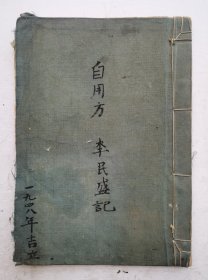 自用方 李民盛記
一九四八年吉立